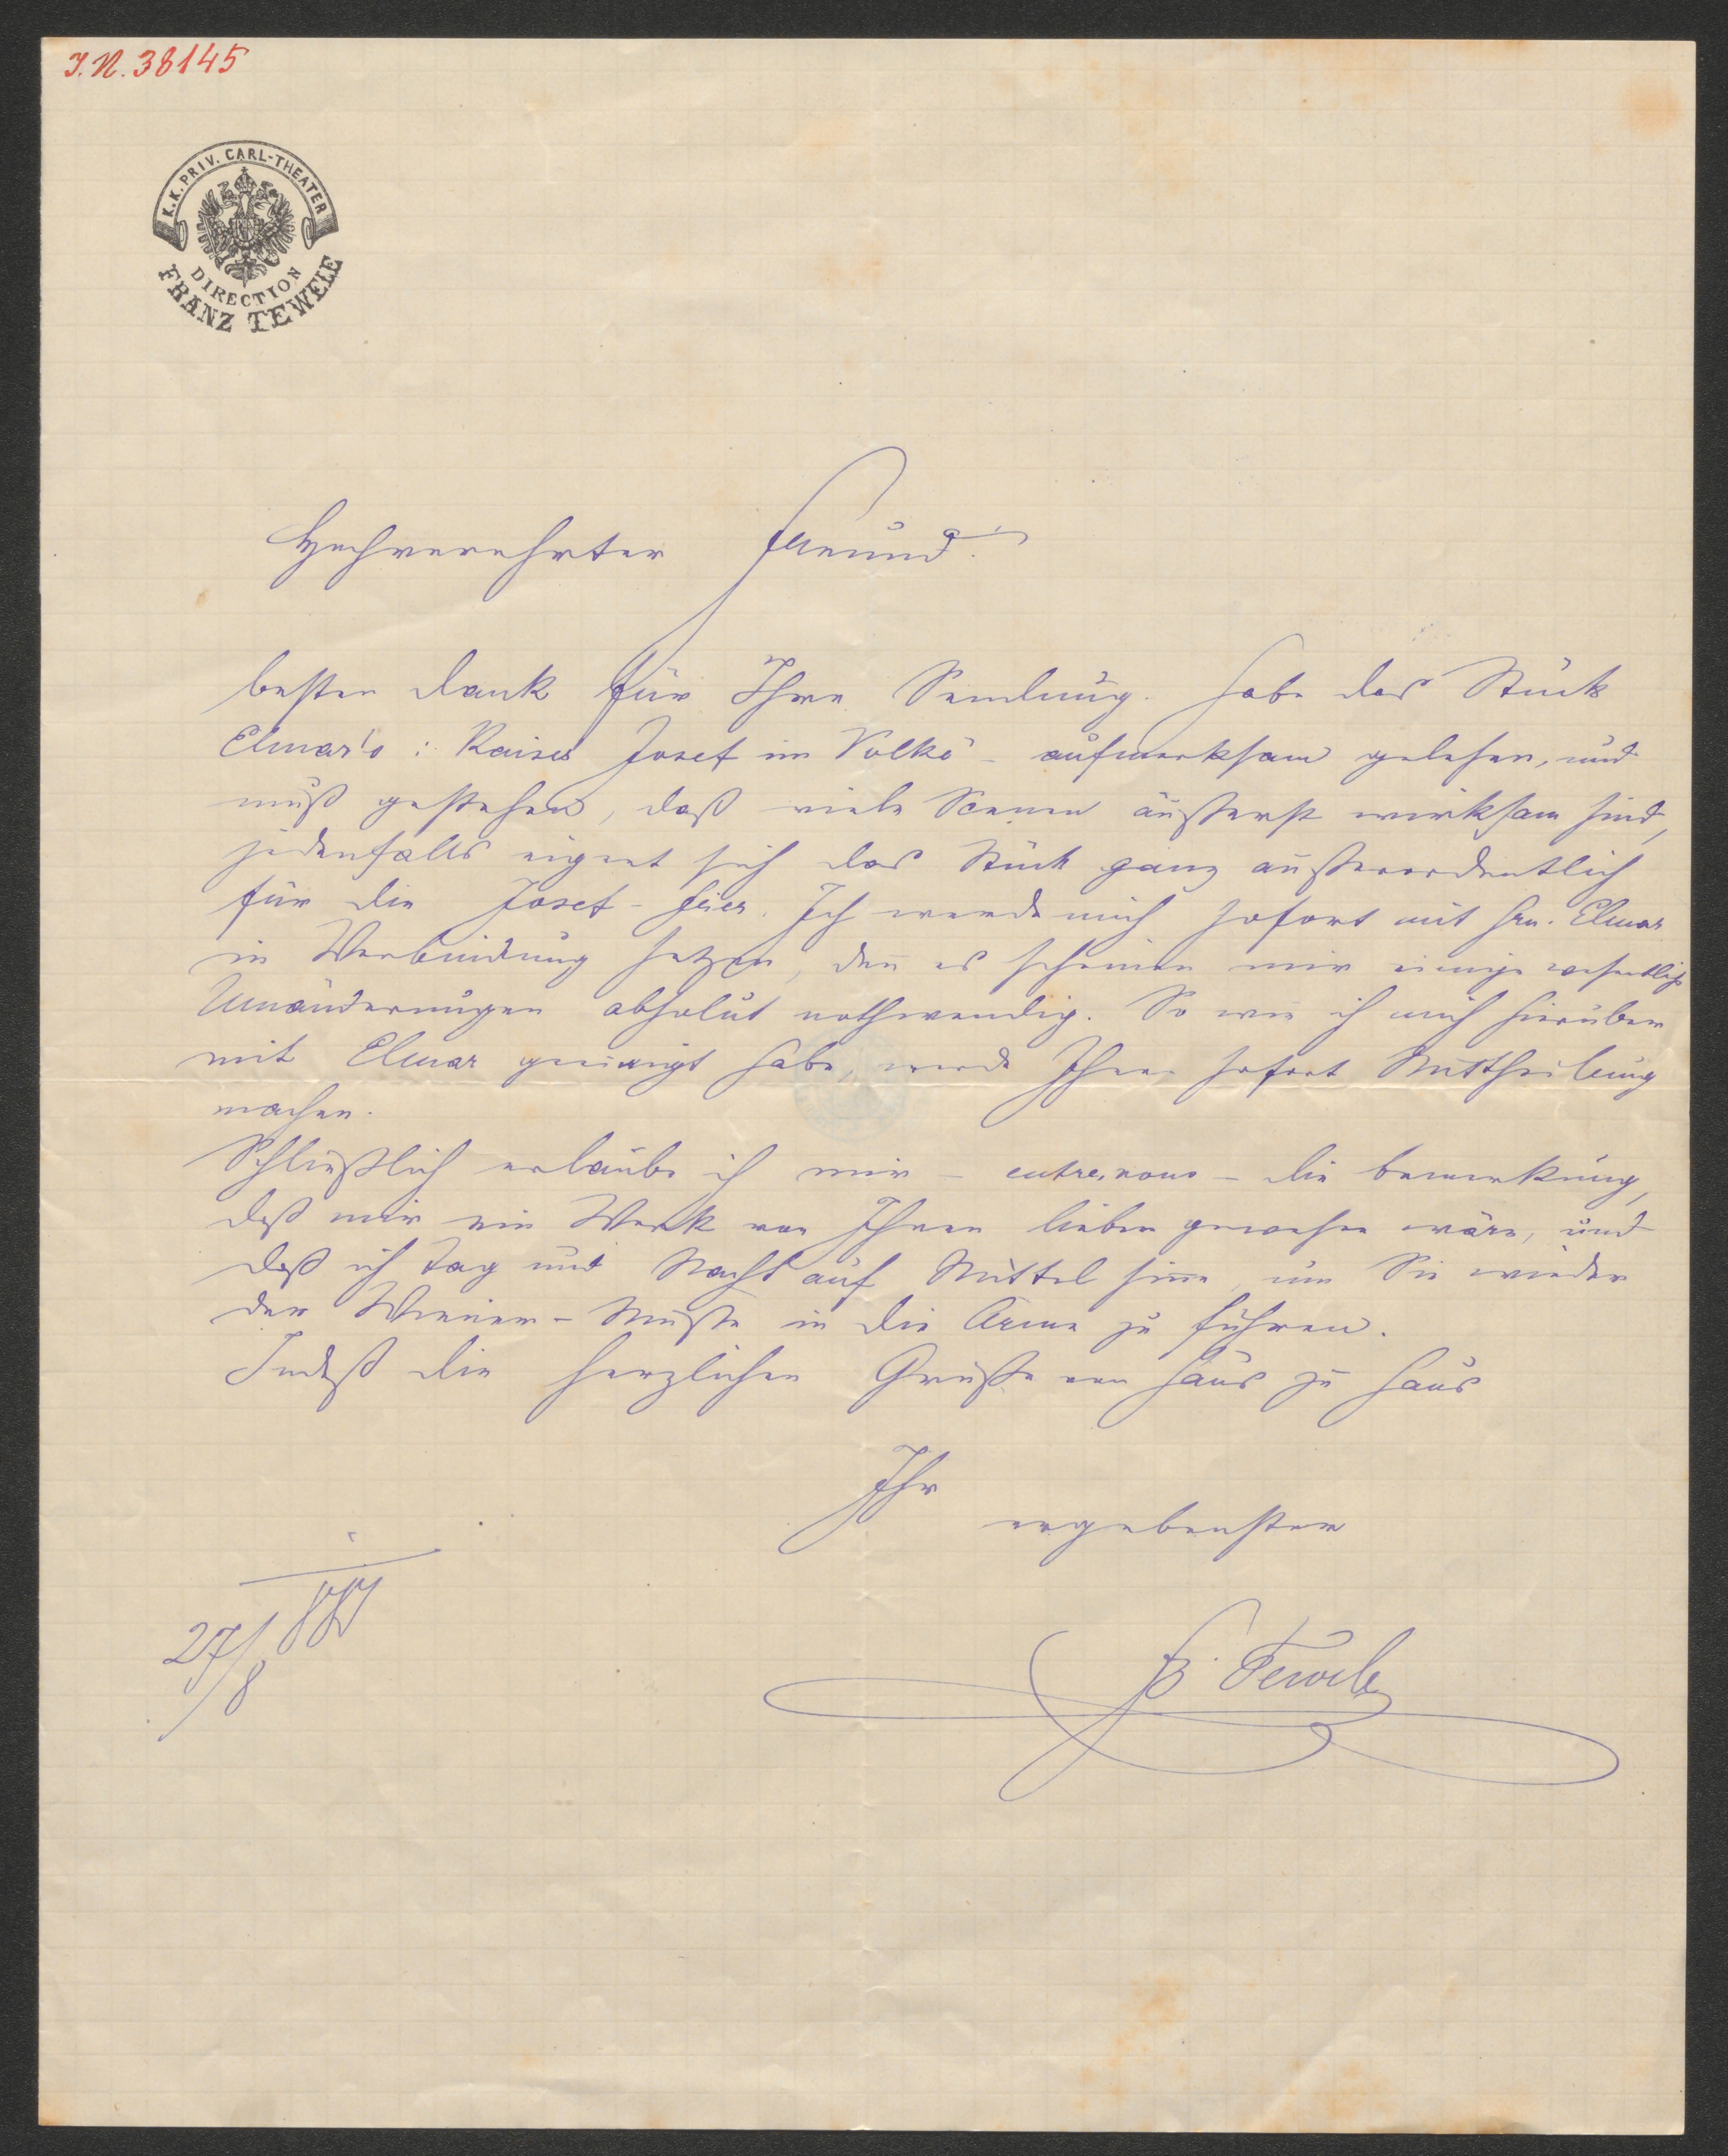 J.N. 38145
K.K. PRIV. CARL-THEATER
DIRECTION
FRANZ TEWELE
Hochverehrter Freund!
besten Dank für Ihre Sendung. Habe das Stück
Elmar's: Kaiser Josef im Volke – aufmerksam gelesen, und
muß gestehen, daß viele Scenen äußerst wirksam sind,
jedenfalls eignet sich das Stück ganz außerordentlich
für die Josef-Feier. Ich werde mich sofort mit Hrn. Elmar
in Verbindung setzen, den̄ es scheinen mir einige wesentliche
Umänderungen absolut nothwendig. So wie ich mich hierüber
mit Elmar geeinigt habe, werde Ihnen sofort Mittheilung
machen.
Schließlich erlaube ich mir – entre nous – die Bemerkung,
daß mir ein Werk von Ihnen lieber gewesen wäre, und
daß ich Tag und Nacht auf Mittel sinne, um Sie wieder
der Wiener-Muse in die Arme zu führen.
Indeß die herzlichen Grüße von Haus zu Haus
Ihr
ergebenster
27/8
Fz. Tewele